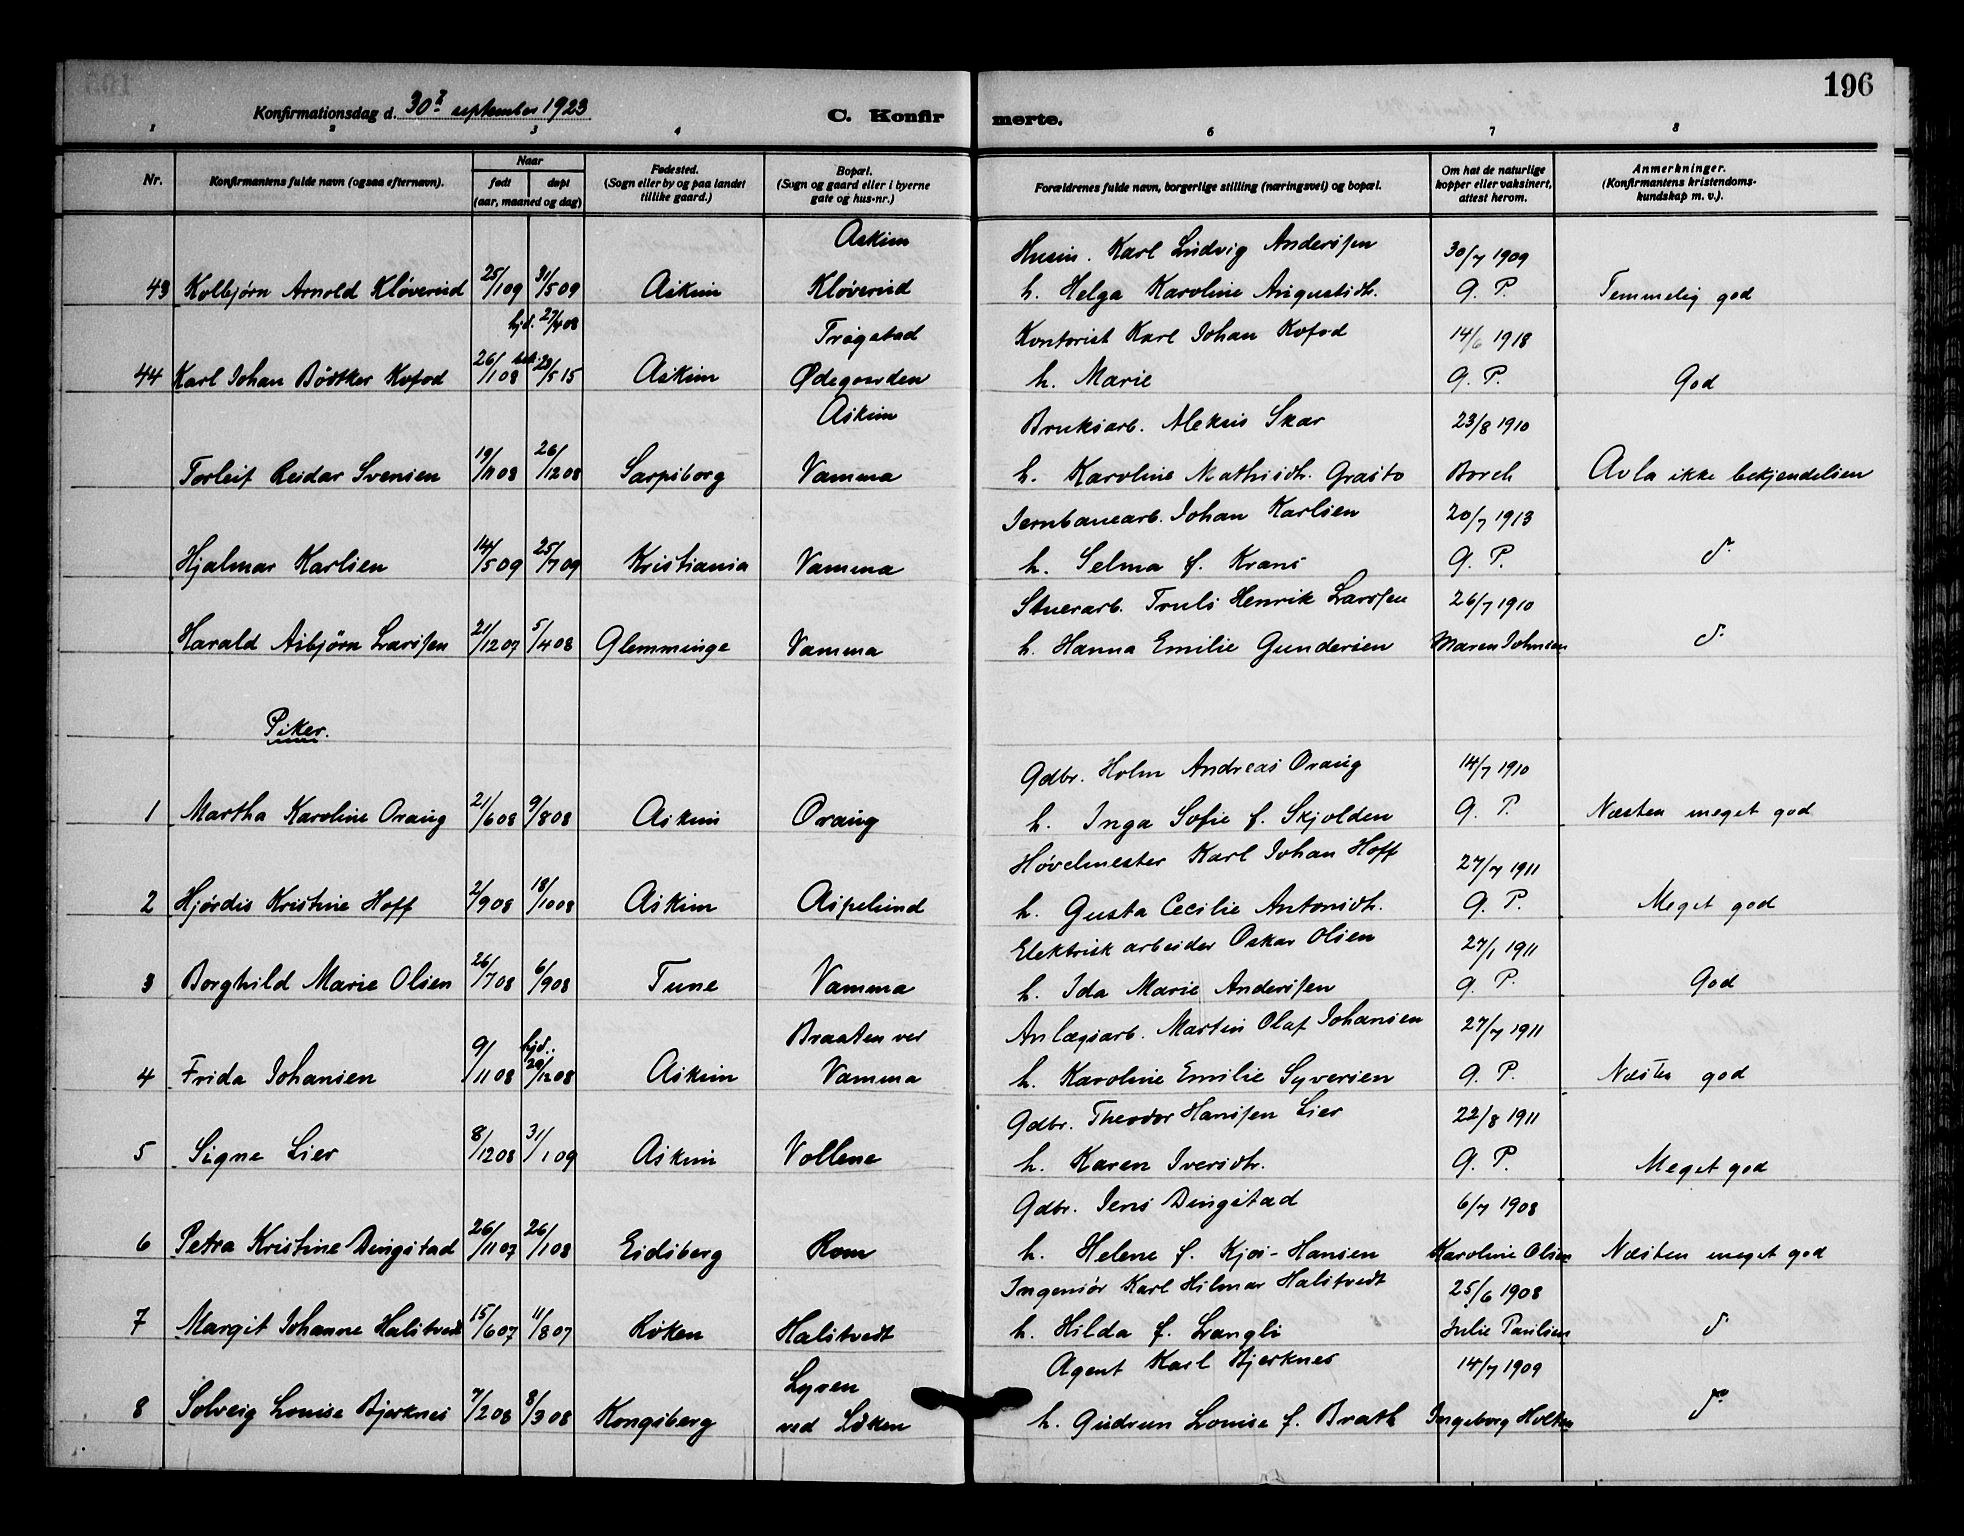 196
Konfirmationsdag d. 30t september 1923
C. Konfirmerte.
1 2 3 4 6 7 8
Nr.
Konfirmantens fulde navn (ogsaa efternavn).
Naar
født døpt
(aar, maaned og dag)
Fødested.
(Sogn eller by og paa landet
tillike gaard.)
Bopæl.
(Sogn og gaard eller i byerne
gate og hus-nr.)
Forældrenes fulde navn, borgerlige stilling (næringsvei) og bopæl.
Om hat de naturlige
kopper eller vaksinert,
attest herom.
Anmerkninger.
(Konfirmantens kristendoms-
kundskap m. v.).
Askim Husm. Karl Ludvig Anderssen 30/7 1909
43 Kolbjørn Arnold Kløverud 25/1 09 31/5 09 Askim Kløverud h. Helga Karoline Augustidt. G. P. Temmelig god
hjd. 27/4 08 Trøgstad Kontorist Karl Johan Kofod 14/6 1918
44 Karl Johan Bödtker Kofod 26/1 08 23/5 15 Askim Ødegaarden h. Marie G. P. God
Askim Bruksarb. Aleksis Skar 23/8 1910
Torleif Reidar Svensen 19/11 08 26/12 08 Sarpsborg Vamma h. Karoline Mathisdt. Grasto Borch Avla ikke bekjendelsen
Jernbanearb. Johan Karlsen 20/7 1913
Hjalmar Karlsen 14/5 09 25/7 09 Kristiania Vamma h. Selma f. Krans G. P. d.
Stuerarb. Truls Henrik Larssen 26/7 1910
Harald Asbjørn Larssen 21/12 07 5/4 08 Glemminge Vamma h. Hanna Emilie Gundersen Maren Johnsen d.
Piker.
Gdbr. Holm Andreas Oraug 14/7 1910
1 Martha Karoline Oraug 21/6 08 9/8 08 Askim Oraug h. Inga Sofie f. Skjolden G. P. Næsten meget god
Høvelmester Karl Johan Hoff 27/7 1911
2 Hjørdis Kristine Hoff 2/9 08 18/10 08 Askim Aspelund h. Gusta Cecilie Antonidt. G. P. Meget god
Elektrisk arbeider Oskar Olsen 27/1 1911
3 Borghild Marie Olsen 26/7 08 6/9 08 Tune Vamma h. Ida Marie Anderssen G. P. God
hjd. Braaten ved Anlægsarb. Martin Olaf Johansen 27/7 1911
4 Frida Johansen 9/11 08 20/12 08 Askim Vamma h. Karoline Emilie Syversen G. P. Næsten god
Gdbr. Theodor Hanssen Lier 22/8 1911
5 Signe Lier 8/12 08 31/1 09 Askim Vollene h. Karen Iversdtr. G. P. Meget god
Gdbr. Jens Dingstad 6/7 1908
6 Petra Kristine Dingstad 26/11 07 26/1 08 Eidsberg Rom h. Helene f. Kjos-Hansen Karoline Olsen Næsten meget god
Ingeniør Karl Hilmar Halstvedt 25/6 1908
7 Margit Johanne Halstvedt 15/6 07 11/8 07 Røken Halstvedt h. Hilda f. Langli Julie Paulsen d.
Lyven Agent Karl Bjerknes 14/7 1909
8 Solveig Louise Bjerknes 7/2 08 8/3 08 Kongsberg ved Løken h. Gudrun Louise f. Brath Ingeborg Holten do